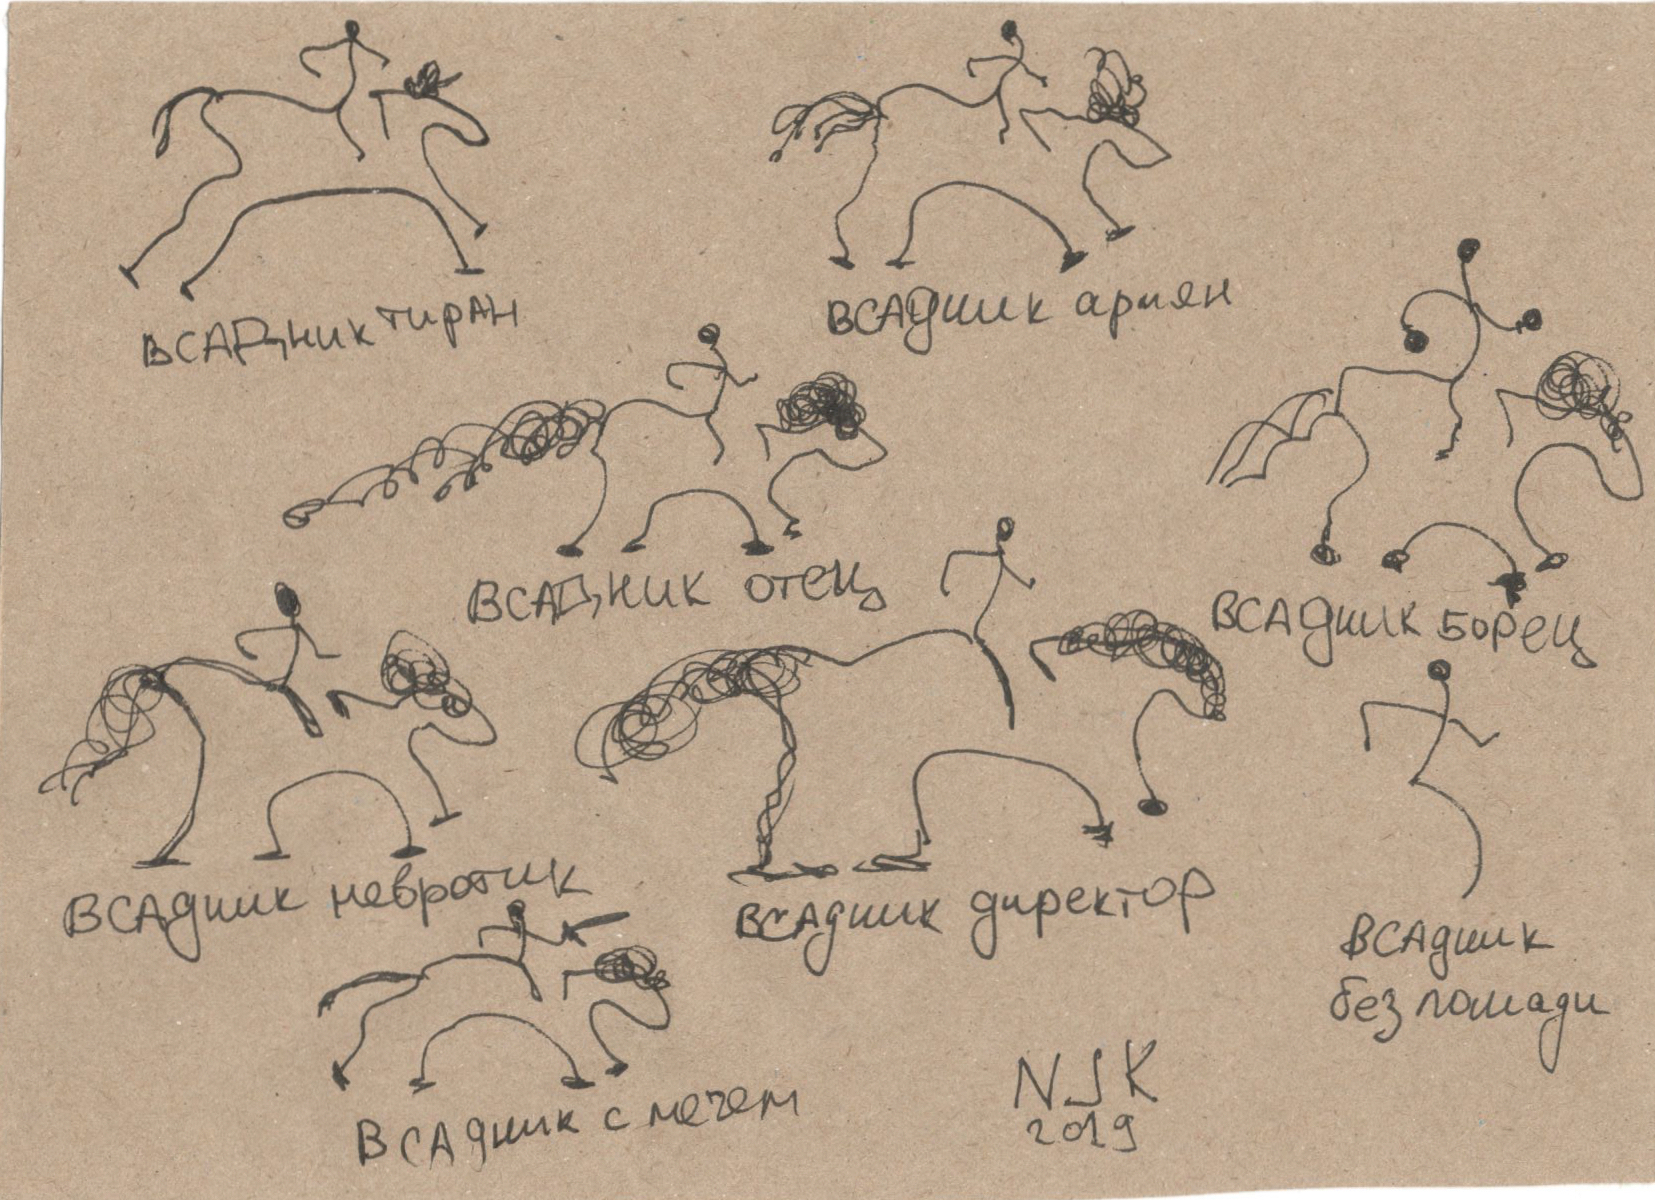 ВСАДНИК ТИРАН
ВСАДНИК ариян
ВСАДНИК отец
ВСАДНИК БОРЕЦ
ВСАДНИК невротик
ВСАДНИК директор
ВСАДНИК
без лошади
ВСАДНИК с мечем
NJK
2019